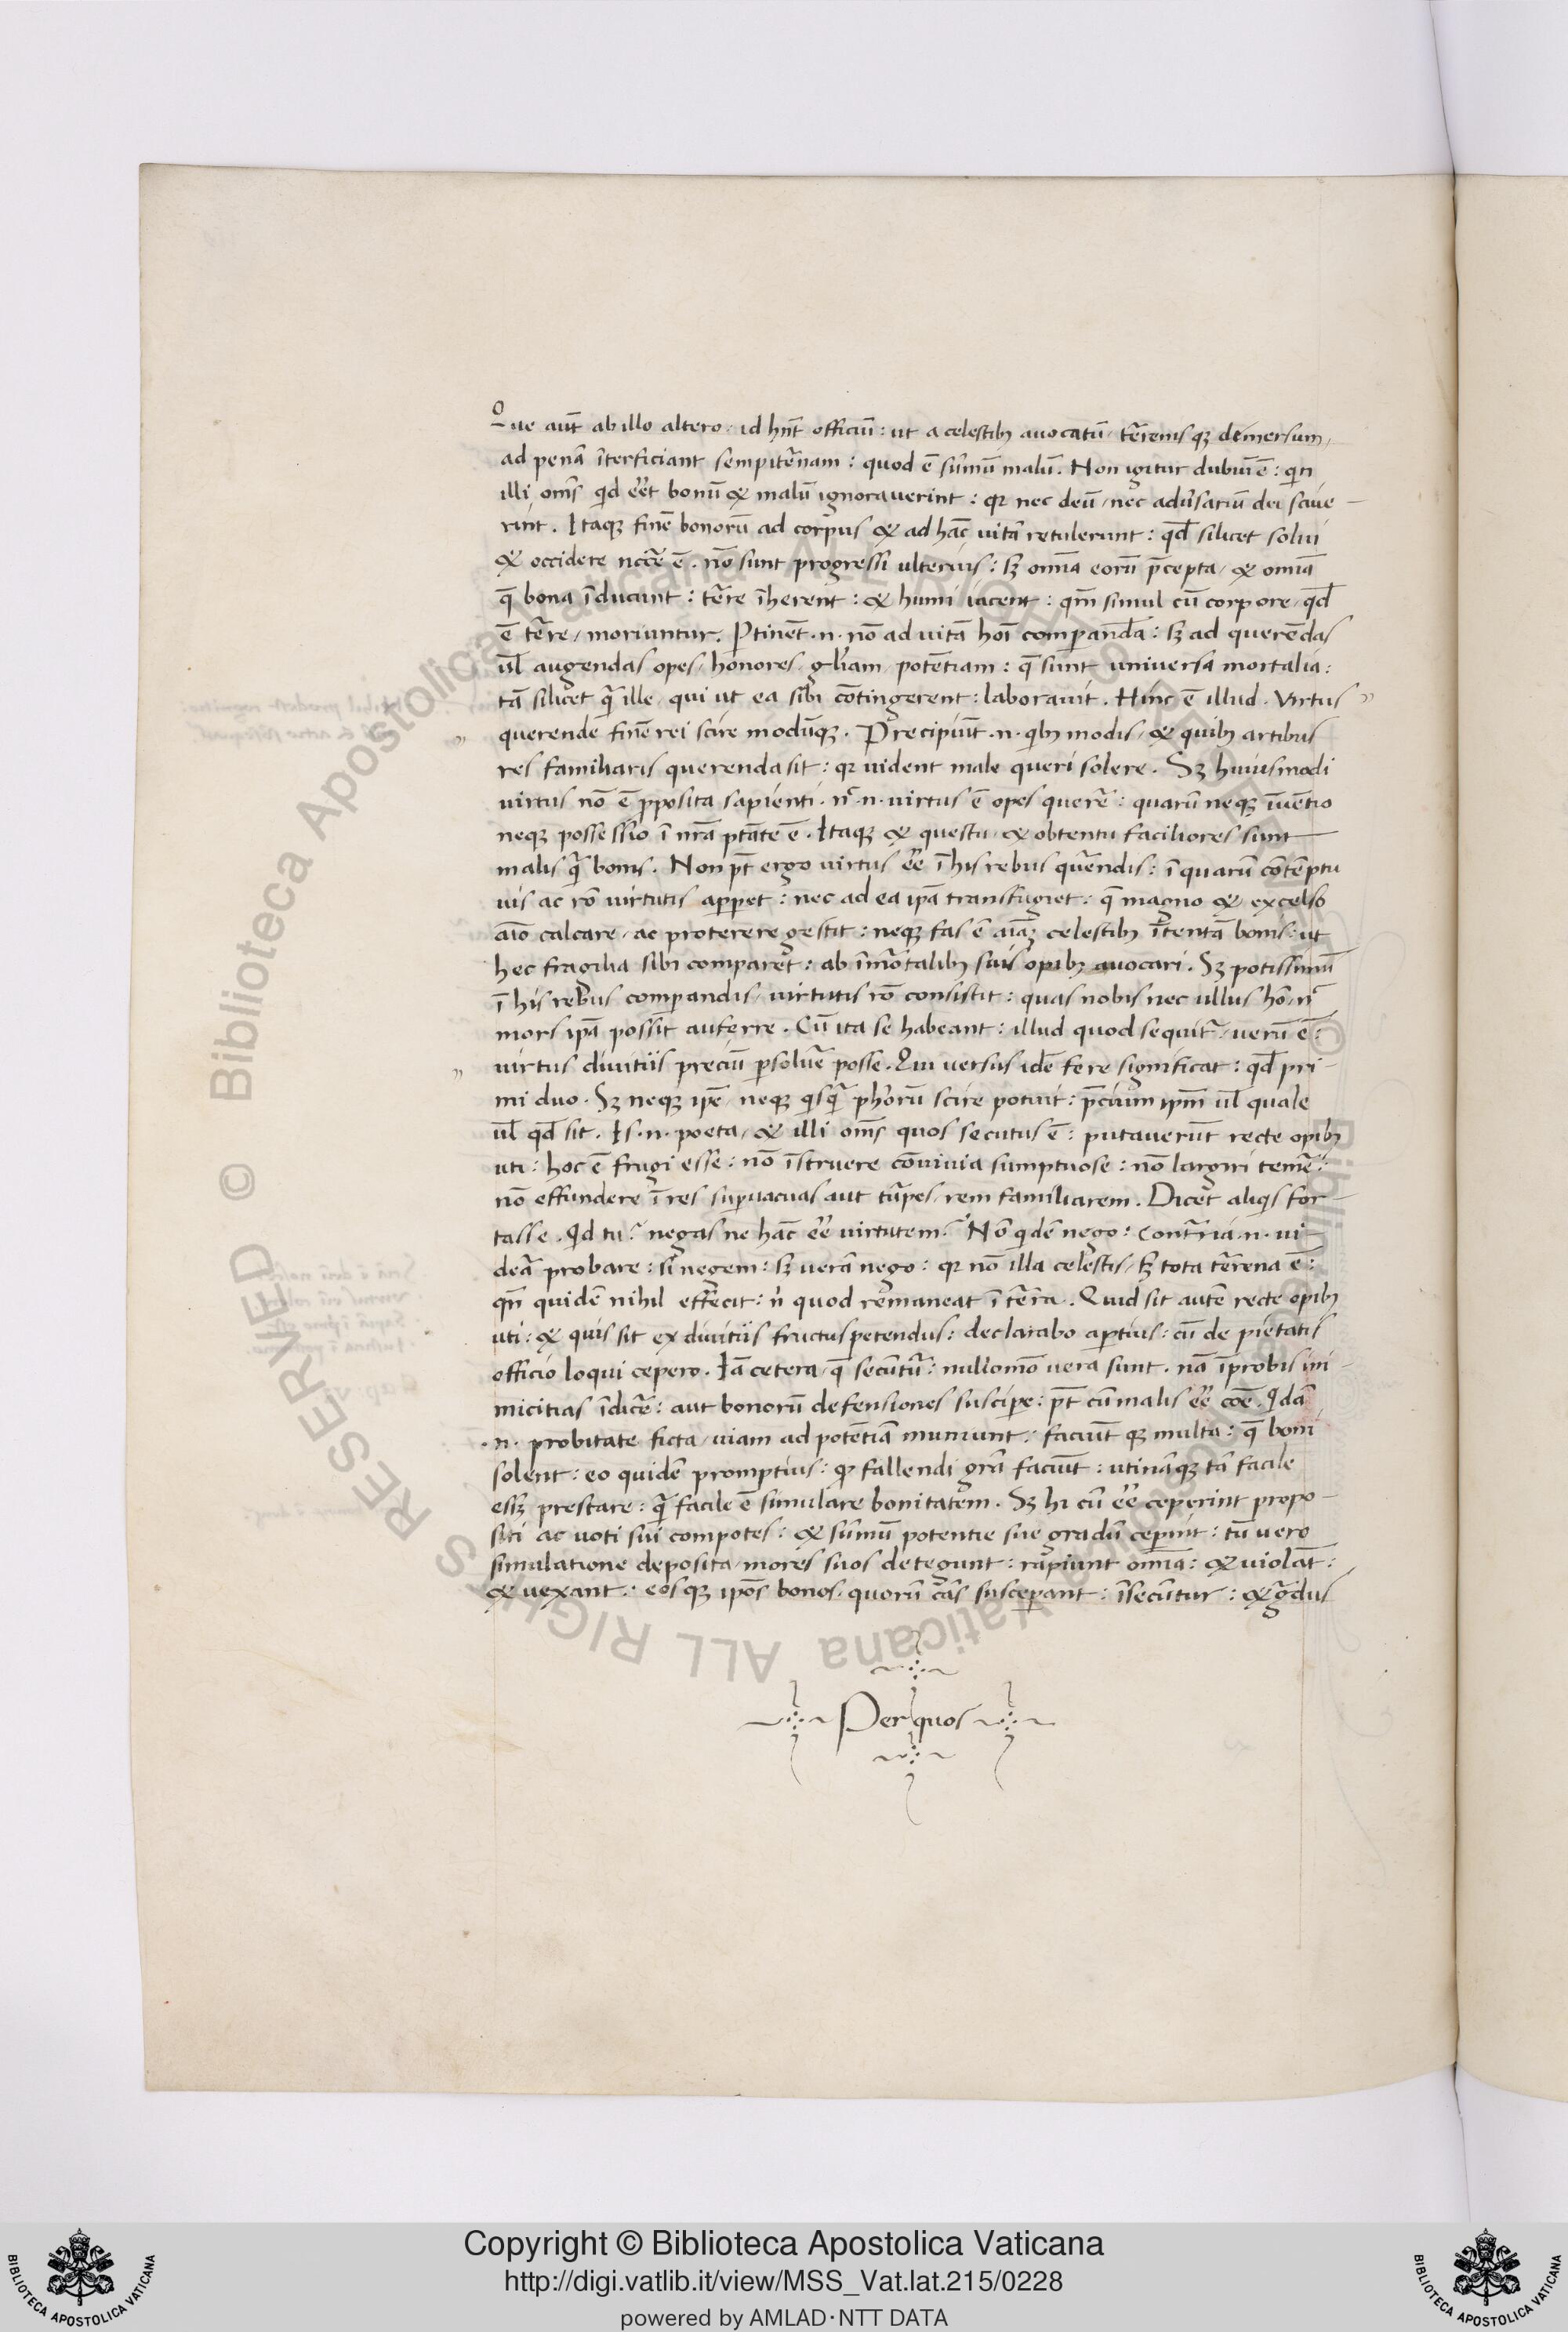 Que aut̄ ab illo altero / id hn̄t officiū : ut a celestibꝫ auocatū / tērenisqꝫ demersum /
ad penā īterficiant sempitērnam : quod ē sūmū malū . Non igitur dubiū ē : qn̄
illi om̄s qd eēt bonū & malū ignorauerint : qꝛ nec deū / nec aduˀsariū dei sciue
rint . Itaqꝫ finē bonorū ad corpus & ad hāc uitā retulerunt : qd̄ silicet solui
& occidere nc̄cē ē . nō sunt progressi ulterius : sꝫ omīa eorū p̄cepta / & omīa
q̄ bona īducunt : tērre īherent : & humi iacent : qm̄ simul cū corpore / qd̄
ē tērre / moriuntur . Ꝑtinēt .n. nō ad uitā hoī comparandā : sꝫ ad querēdas
ul̄ augendas opes / honores / gl̄iam / potētiam : q̄ sunt uniuersa mortalia :
tā silicet q̄ ille / qui ut ea sibi cōtingerent : laborauit . Hinc ē illud . Virtus
querende finē rei scire modūqꝫ . Precipiūt .n. qibꝫ modis / & quibꝫ artibus
res familiaris querenda sit : qꝛ uident male queri solere . Sꝫ huiusmodi
uirtus nō ē ꝓposita sapienti . nͨ .n. uirtus ē opes querē : quarū neqꝫ īuētio
neqꝫ possessio ī nrā ptāte ē . Itaqꝫ & questu / & obtentu faciliores sunt
malis q̄ bonis . Non pt̄ ergo uirtus eē ī his rebus querēndis : ī quarū cōtēptu
uis ac rō uirtutis apparet : nec ad ea ipa transfugiet : q̄ magno & excelso
aīo calcare / ac proterere gestit : neqꝫ fas ē aīaꝫ celestibꝫ ītentā bonis : ut
hec fragilia sibi comparet : ab īmōrtalibꝫ suis opibꝫ auocari . Sꝫ potissimū
ī his rebus comparandis / uirtutis rō consistit : quas nobis nec ullus hō / nͨ
mors ipā possit auferre . Cū ita se habeant : illud quod sequitˀ / uerū ē :
uirtus diuitiis preciū ꝑsoluē posse . Qui uersus idē fere significat : qd̄ pri
mi duo . Sꝫ neqꝫ ipē / neqꝫ qisq̄ ph̄orū scire potuit : p̄cium ipm̄ ul̄ quale
ul̄ qd̄ sit . Is .n. poeta / & illi om̄s quos secutus ē : putauerūt recte opibꝫ
uti : hoc ē frugi esse : nō īstruere cōuiuia sumptuose : nō largiri temē :
nō effundere ī res suꝑuacuas aut tūrpes / rem familiarem . Dicet aliqis for
tasse . Qd tu ? negas ne hāc eē uirtutem ? Nō qidē nego : Contrāria .n. ui
deā probare : si negem : sꝫ uerā nego : qꝛ nō illa celestis / sꝫ tota tērrena ē :
qn̄ quidē nihil effecit : nˀ quod remaneat ī terrā . Quid sit autē recte opibꝫ
uti : & quis sit ex diuitiis fructus petendus : declarabo aꝑtius : cū de pietatis
officio loqui cepero . Iā cetera / q̄ secūtur : nullomō uera sunt . nā īprobis ini
micitias īdicē : aut bonorū defensiones susciꝑe : pt̄ cū malis eē cōē . Qdā
.n. probitate ficta / uiam ad potētiā muniunt / faciūtqꝫ multa : q̄ boni
solent : eo quidē promptius : ꝙ fallendi grā faciūt : utināqꝫ tā facile
essꝫ prestare : q̄ facile ē simulare bonitatem . Sꝫ hi cū eē ceperint propo
siti ac uoti sui compotes : & sūmū potentie sue gradū cepint : tū uero
simulatione deposita / mores suos detegunt : rapiunt omīa : & uiolāt :
& uexant : eosqꝫ ipōs bonos / quorū cās susceperant : īsecūtur : & gradus
Per quos
Copyright © Biblioteca Apostolica Vaticana
http://digi.vatlib.it/view/MSS_Vat.lat.215/0228
powered by AMLAD·NTT DATA
BIBLIOTECA APOSTOLICA VATICANA
BIBLIOTECA APOSTOLICA VATICANA
© Biblioteca Apostolica Vaticana ALL RIGHTS RESERVED